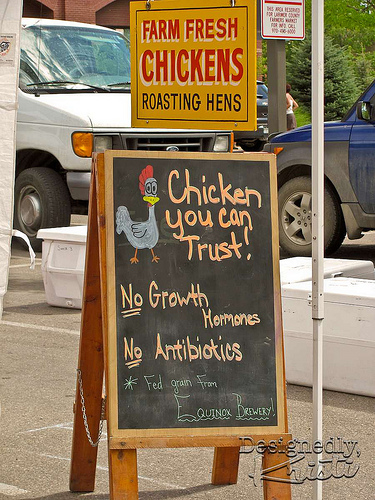 FARM FRESH
CHICKENS
ROASTING HENS
THIS AREA RESERVED
FOR LARIMER COUNTY
FARMERS MARKET
FOR INFO. CALL
Chicken
you can
Trust!
No Growth
Hormones
No Antibiotics
* Fed grain From
Equinox Brewery!
Designedly,
Kristi